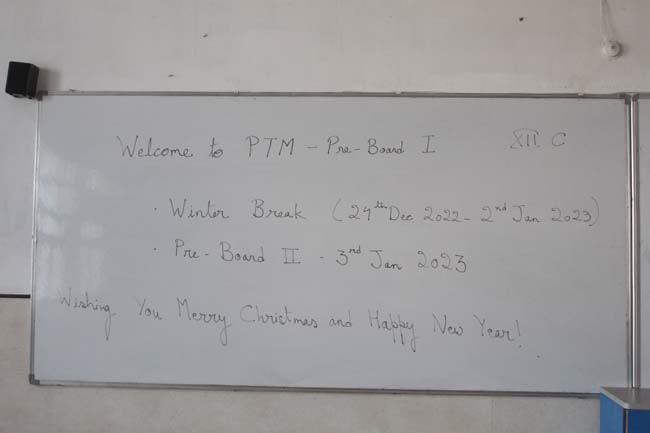 Welcome to PTM - Pre-Board I XII C
· Winter Break (24th Dec 2022 - 2nd Jan 2023)
· Pre-Board II - 3rd Jan 2023
Wishing You Merry Christmas and Happy New Year!